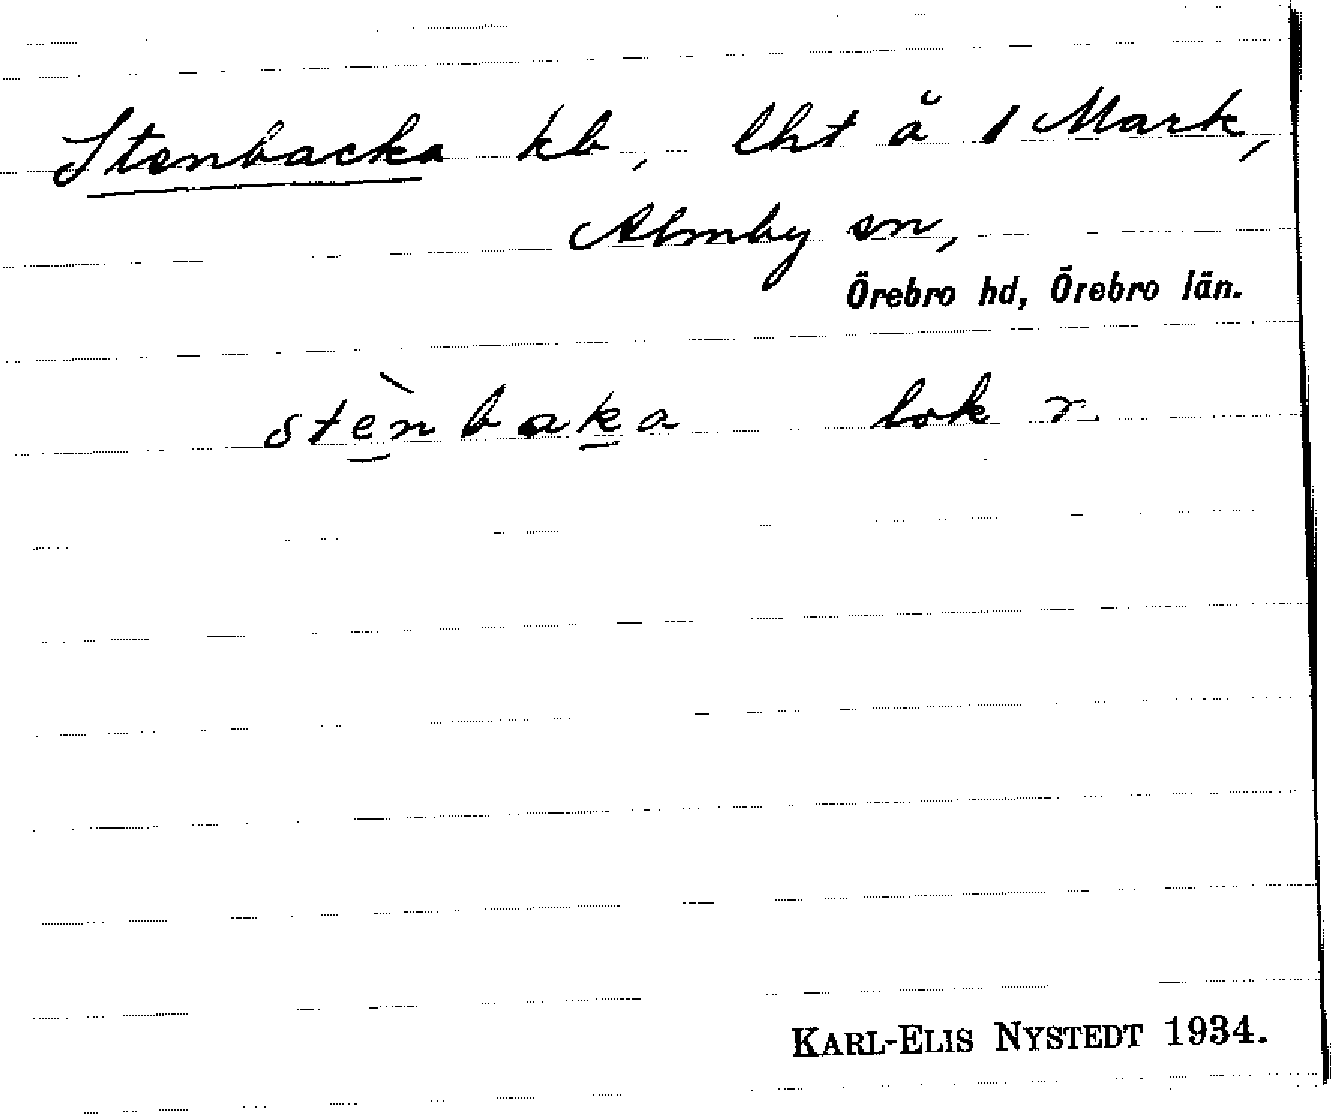 Stenbacka kb, lht å 1 Mark,
Almby sn,
Örebro hd, Örebro län.
stènbaka lok r
KARL-ELIS NYSTEDT 1934.